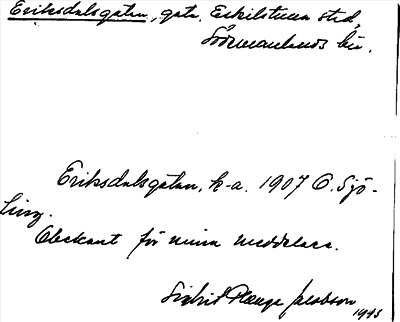 Eriksdalsgatan, gata, Eskilstuna stad,
Södermanlands län.
Eriksdalsgatan, k-a. 1907 O. Sjö-
ling.
Obekant för mina meddelare.
Sigrid Plenge Jacobson
1943